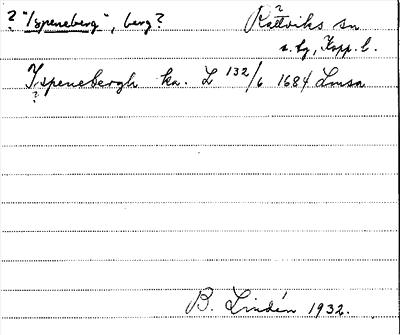 ? "Ispeneberg", berg? Rättviks sn
s. tg, Kopp. l.
Yspenebergh ka. L 132/6 1684 Lmsa
?
B. Lindén 1932.